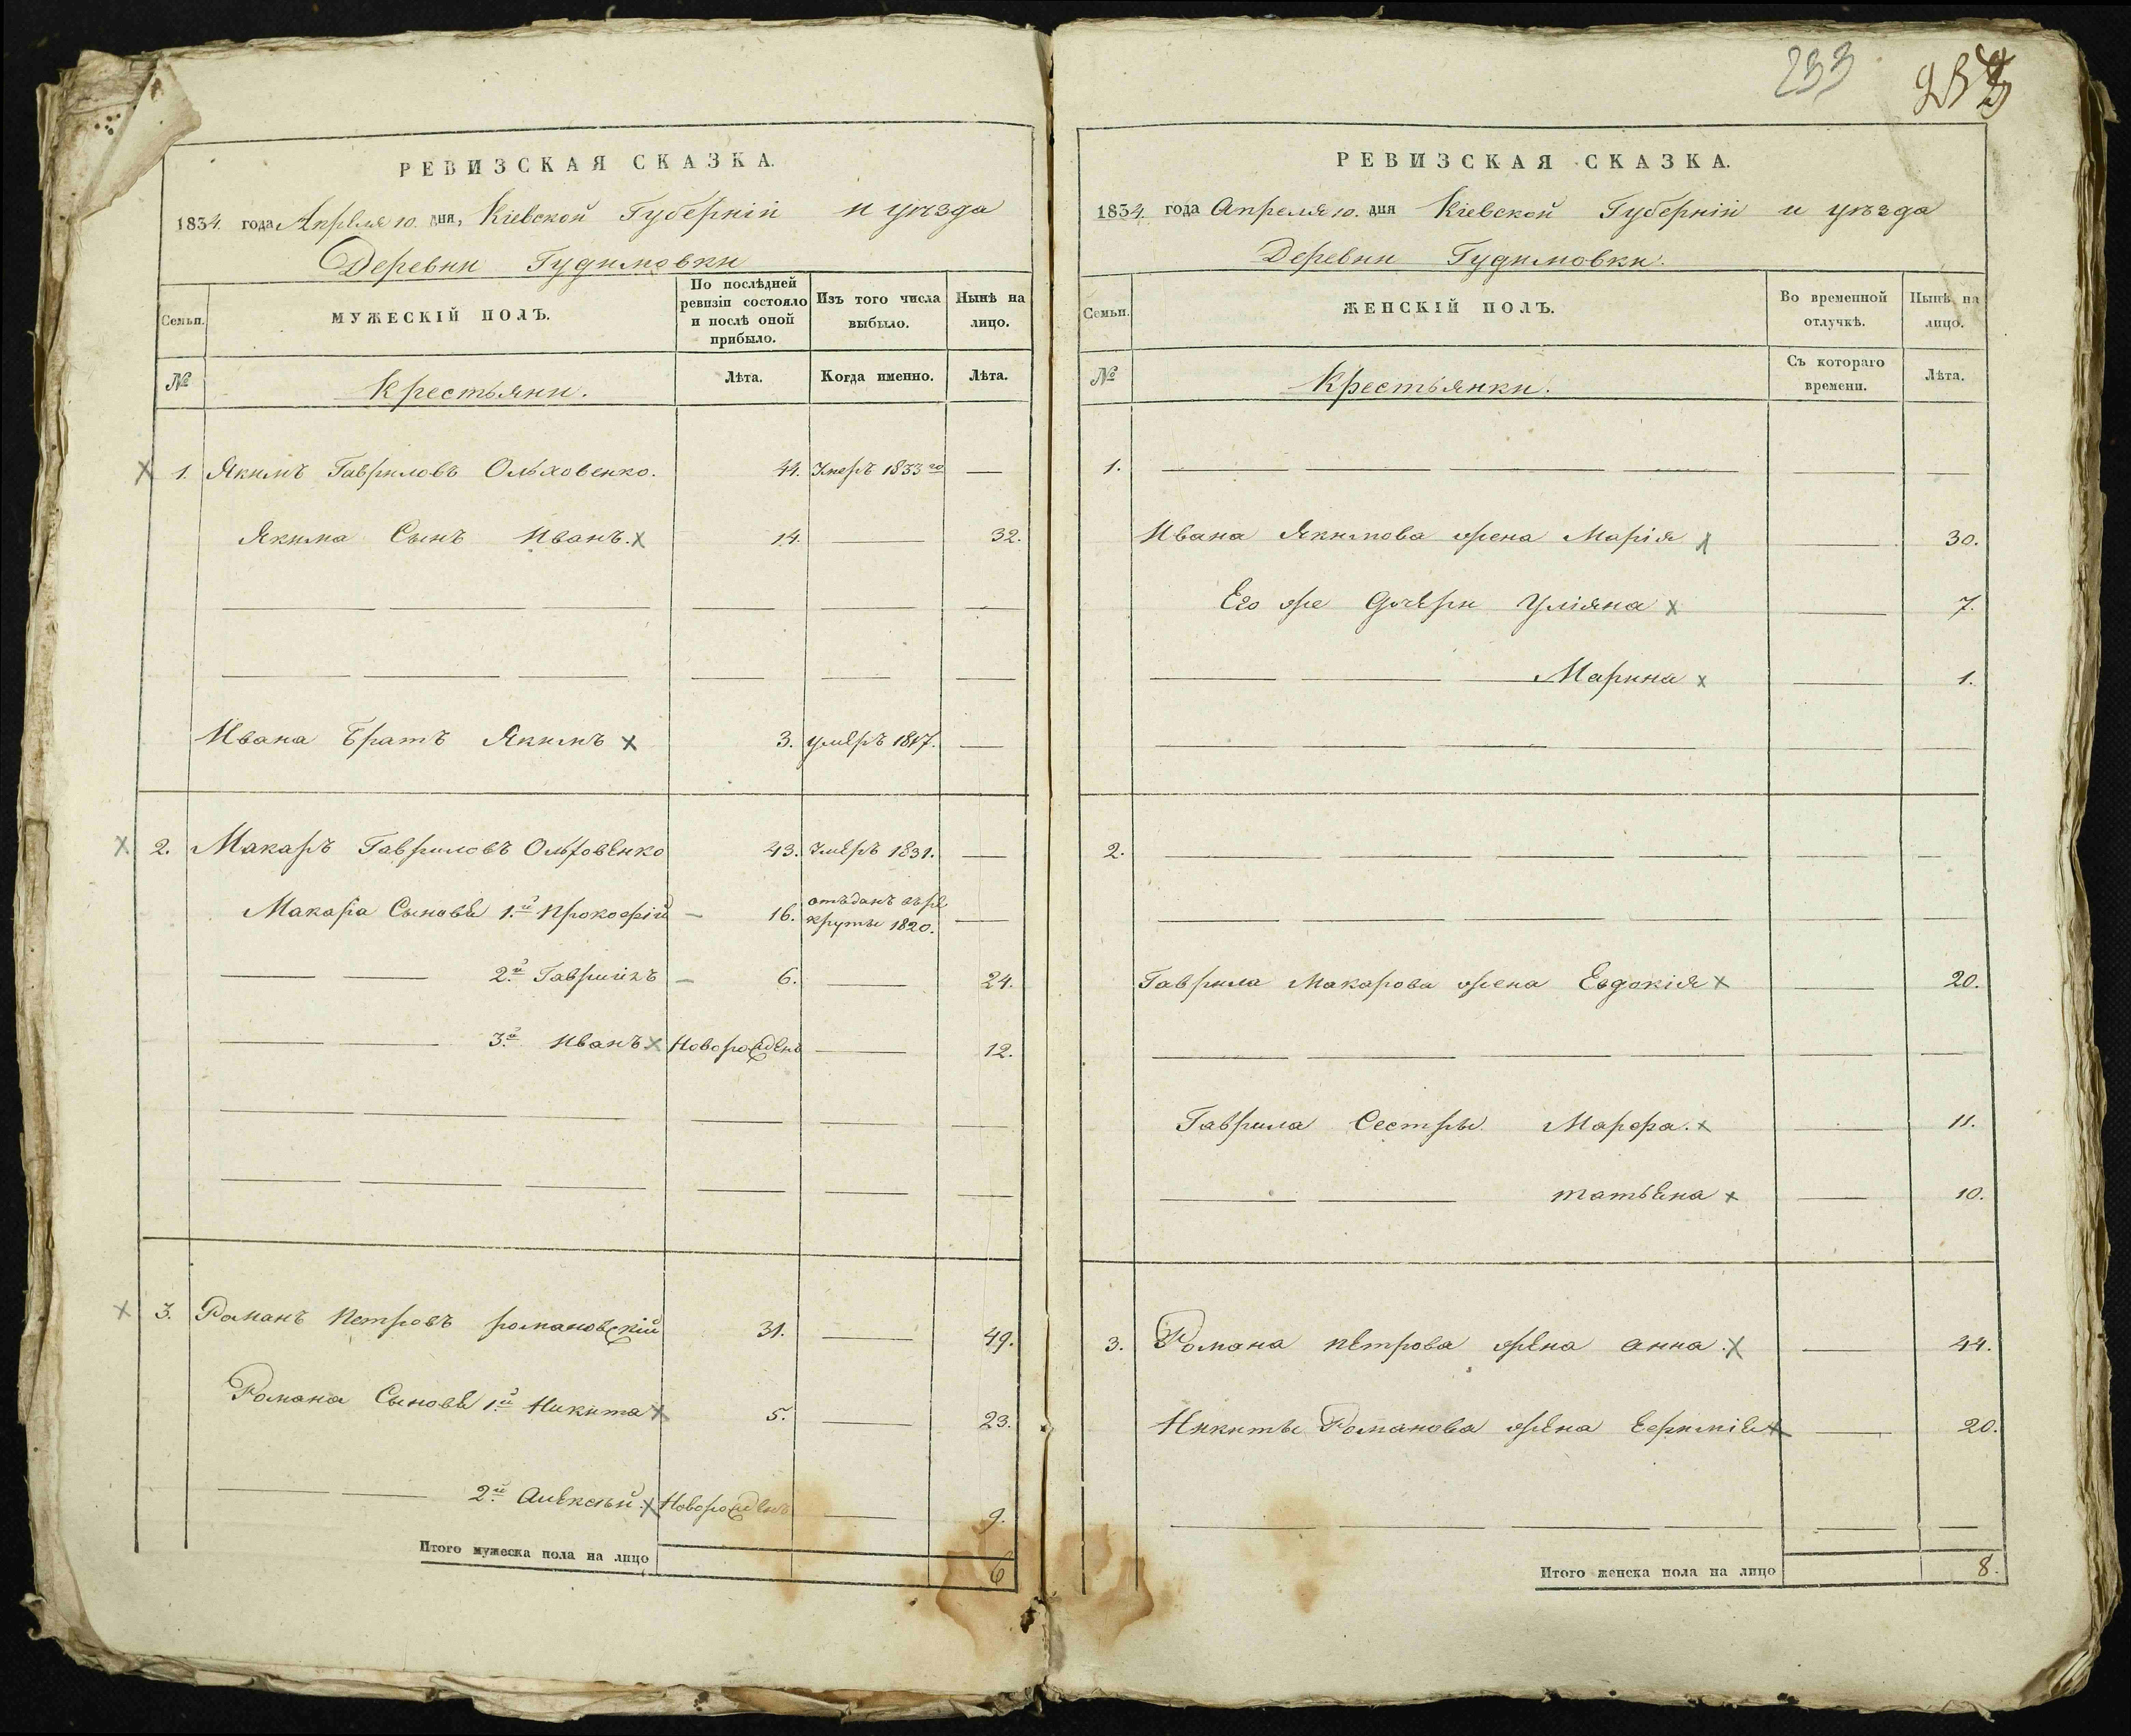 РЕВИЗСКАЯ СКАЗКА.
1834. года Апреля 10. дня, Кіевской Губерніи и уѣзда
Деревни Гудимовки
Семьи.
МУЖЕСКІЙ ПОЛЪ.
По послѣдней ревизіи состояло и послѣ оной прибыло.
Изъ того числа выбыло.
Нынѣ на лицо.
№
Крестьяни.
Лѣта.
Когда именно.
Лѣта.
1. Якимъ Гавриловъ Ольховенко. 44. Умеръ 1833го —
Якима Сынъ Иванъ. 14. — 32.
Ивана Братъ Якимъ 3. умеръ 1817. —
2. Макаръ Гавриловъ Ольховенко 43. Умеръ 1831. —
Макара Сыновья 1.й Прокофій — 16. отъданъ върекруты 1820. —
2.й Гавриилъ — 6. — 24.
3.й Иванъ Новорожденъ — 12.
3. Романъ Петровъ романовскій 31. — 49.
Романа Сыновья 1.й Никита 5. — 23.
2.й Алексѣй. Новорожденъ — 9.
Итого мужеска пола на лицо 6
233
РЕВИЗСКАЯ СКАЗКА.
1834. года Апреля 10. дня Кіевской Губерніи и уѣзда
Деревни Гудимовки.
Семьи.
ЖЕНСКІЙ ПОЛЪ.
Во временной отлучкѣ.
Нынѣ на лицо.
№
Крестьянки.
Съ котораго времени.
Лѣта.
1. — — —
Ивана Якимова жена Марія — 30.
Его же дочери Уліяна — 7.
— Марина — 1.
2. — — —
Гаврила Макарова жена Евдокія — 20.
Гаврила Сестры Марфа. — 11.
— татьяна — 10.
3. Романа петрова жена анна. — 44.
Никиты Романова жена Ефимія — 20.
Итого женска пола на лицо 8.